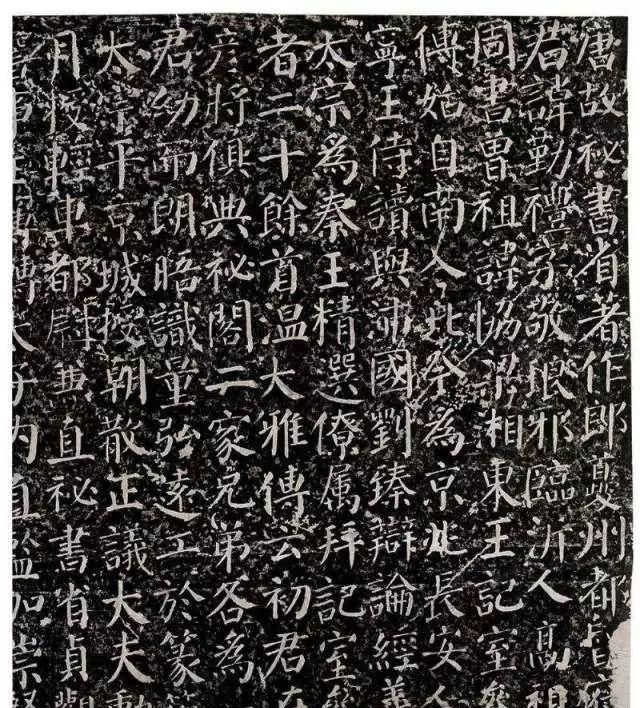 唐故祕書省著作郎夔州都督
君諱勤禮字敬琅邪臨沂人高祖
周書曾祖諱協梁湘東王記室參
傳始自南入北今爲京兆長安人
寧王侍讀與沛國劉臻辯論經義
太宗爲秦王精選僚属拜記室參
者二十餘首温大雅傳云初君在
彦將俱典祕閣二家兄弟各爲
君幼而朗晤識量弘遠工於篆
太宗平京城授朝散正議大夫勳
月授輕車都尉兼直祕書省貞觀
轉太子内直監加崇